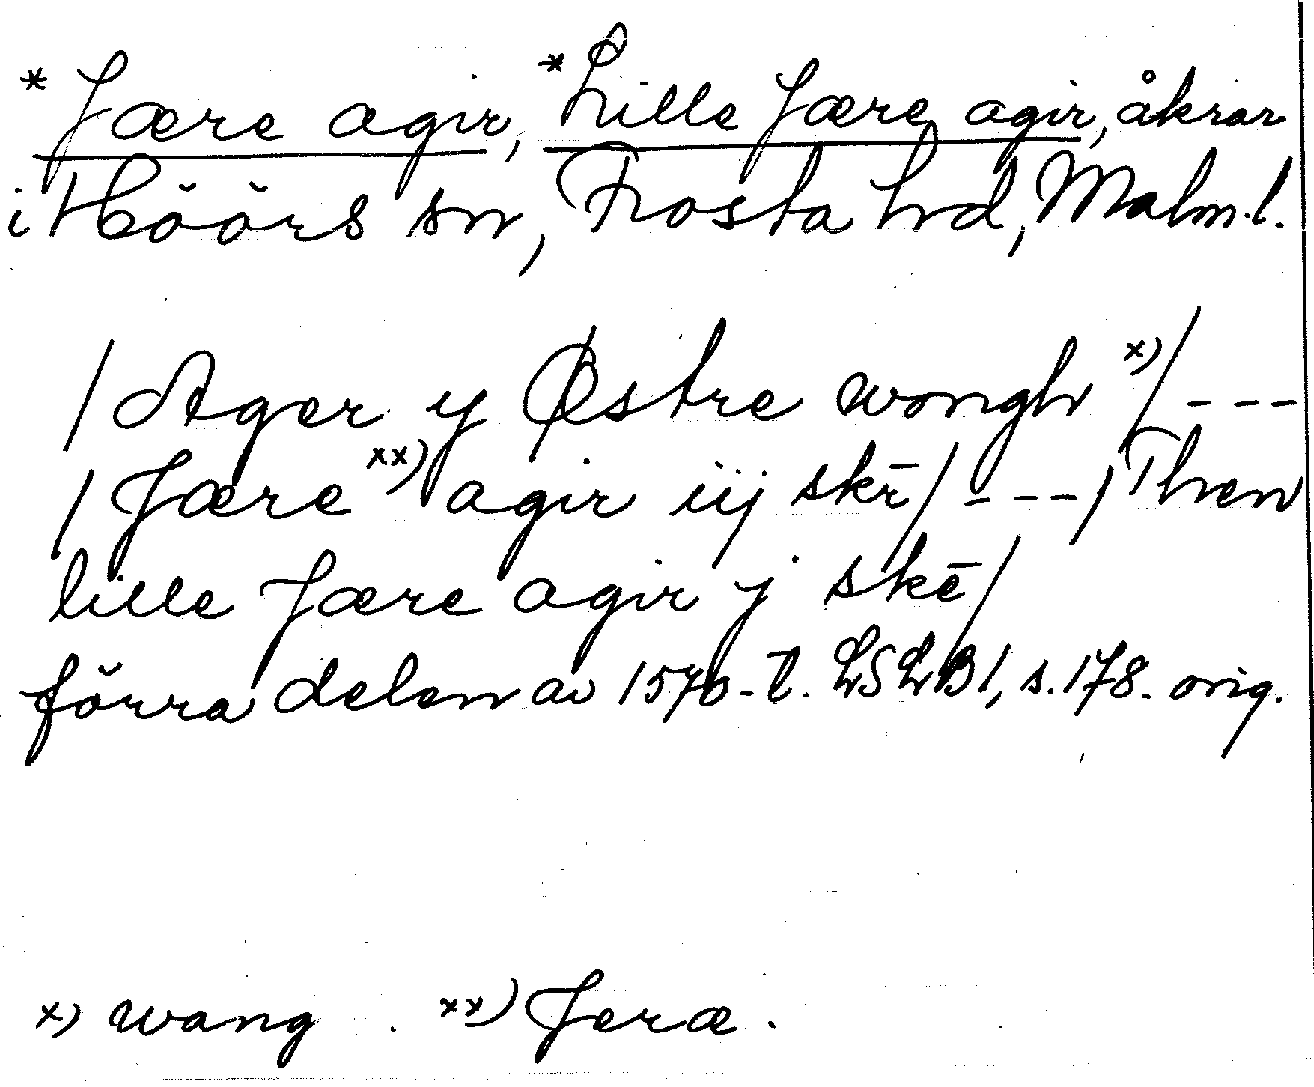 *Jære agir, *Lille Jære agir, åkrar
i Höörs sn, Frosta hd, Malm.l.
/Ager y Østre wongh x)/---
/Jære xx) agir iij skē/---/Then
lille Jære agir j skē/
förra delen av 1570-t. LSLB1, s.178. orig.
x) wang. xx) Jeræ.